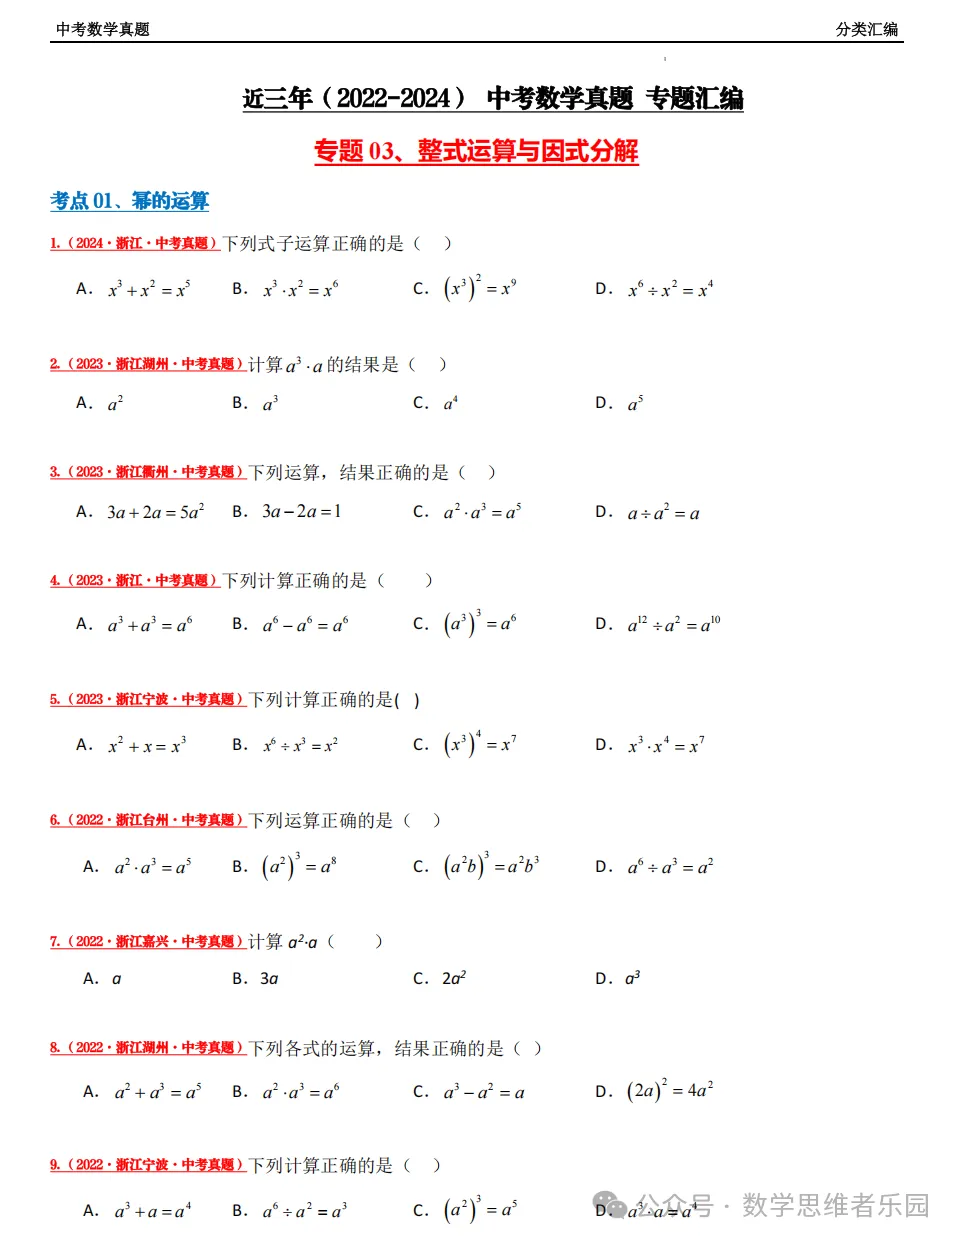 中考数学真题 分类汇编
近三年（2022-2024） 中考数学真题 专题汇编
专题 03、整式运算与因式分解
考点 01、幂的运算
1.（2024·浙江·中考真题）下列式子运算正确的是（ ）
A． x³ + x² = x⁵ B． x³ · x² = x⁶ C． (x³)² = x⁹ D． x⁶ ÷ x² = x⁴
2.（2023·浙江湖州·中考真题）计算 a³ · a 的结果是（ ）
A． a² B． a³ C． a⁴ D． a⁵
3.（2023·浙江衢州·中考真题）下列运算，结果正确的是（ ）
A． 3a + 2a = 5a² B． 3a − 2a = 1 C． a² · a³ = a⁵ D． a ÷ a² = a
4.（2023·浙江·中考真题）下列计算正确的是（ ）
A． a³ + a³ = a⁶ B． a⁶ − a⁶ = a⁶ C． (a³)³ = a⁶ D． a¹² ÷ a² = a¹⁰
5.（2023·浙江宁波·中考真题）下列计算正确的是( )
A． x² + x = x³ B． x⁶ ÷ x³ = x² C． (x³)⁴ = x⁷ D． x³ · x⁴ = x⁷
6.（2022·浙江台州·中考真题）下列运算正确的是（ ）
A． a² · a³ = a⁵ B． (a²)³ = a⁸ C． (a²b)³ = a²b³ D． a⁶ ÷ a³ = a²
7.（2022·浙江嘉兴·中考真题）计算 a²·a（ ）
A．a B．3a C．2a² D．a³
8.（2022·浙江湖州·中考真题）下列各式的运算，结果正确的是（ ）
A． a² + a³ = a⁵ B． a² · a³ = a⁶ C． a³ − a² = a D． (2a)² = 4a²
9.（2022·浙江宁波·中考真题）下列计算正确的是（ ）
A． a³ + a = a⁴ B． a⁶ ÷ a² = a³ C． (a²)³ = a⁵ D． a³ · a = a⁴
公众号 · 数学思维者乐园